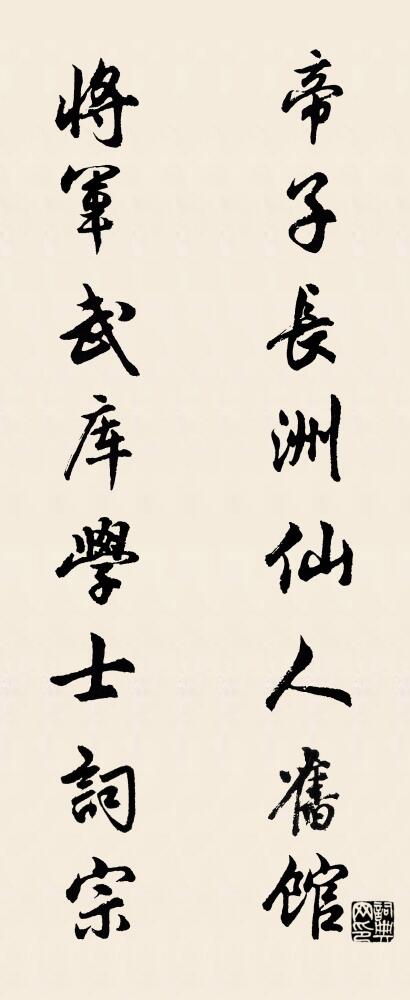 帝子長洲仙人舊館
將軍武库學士詞宗
詞典网印